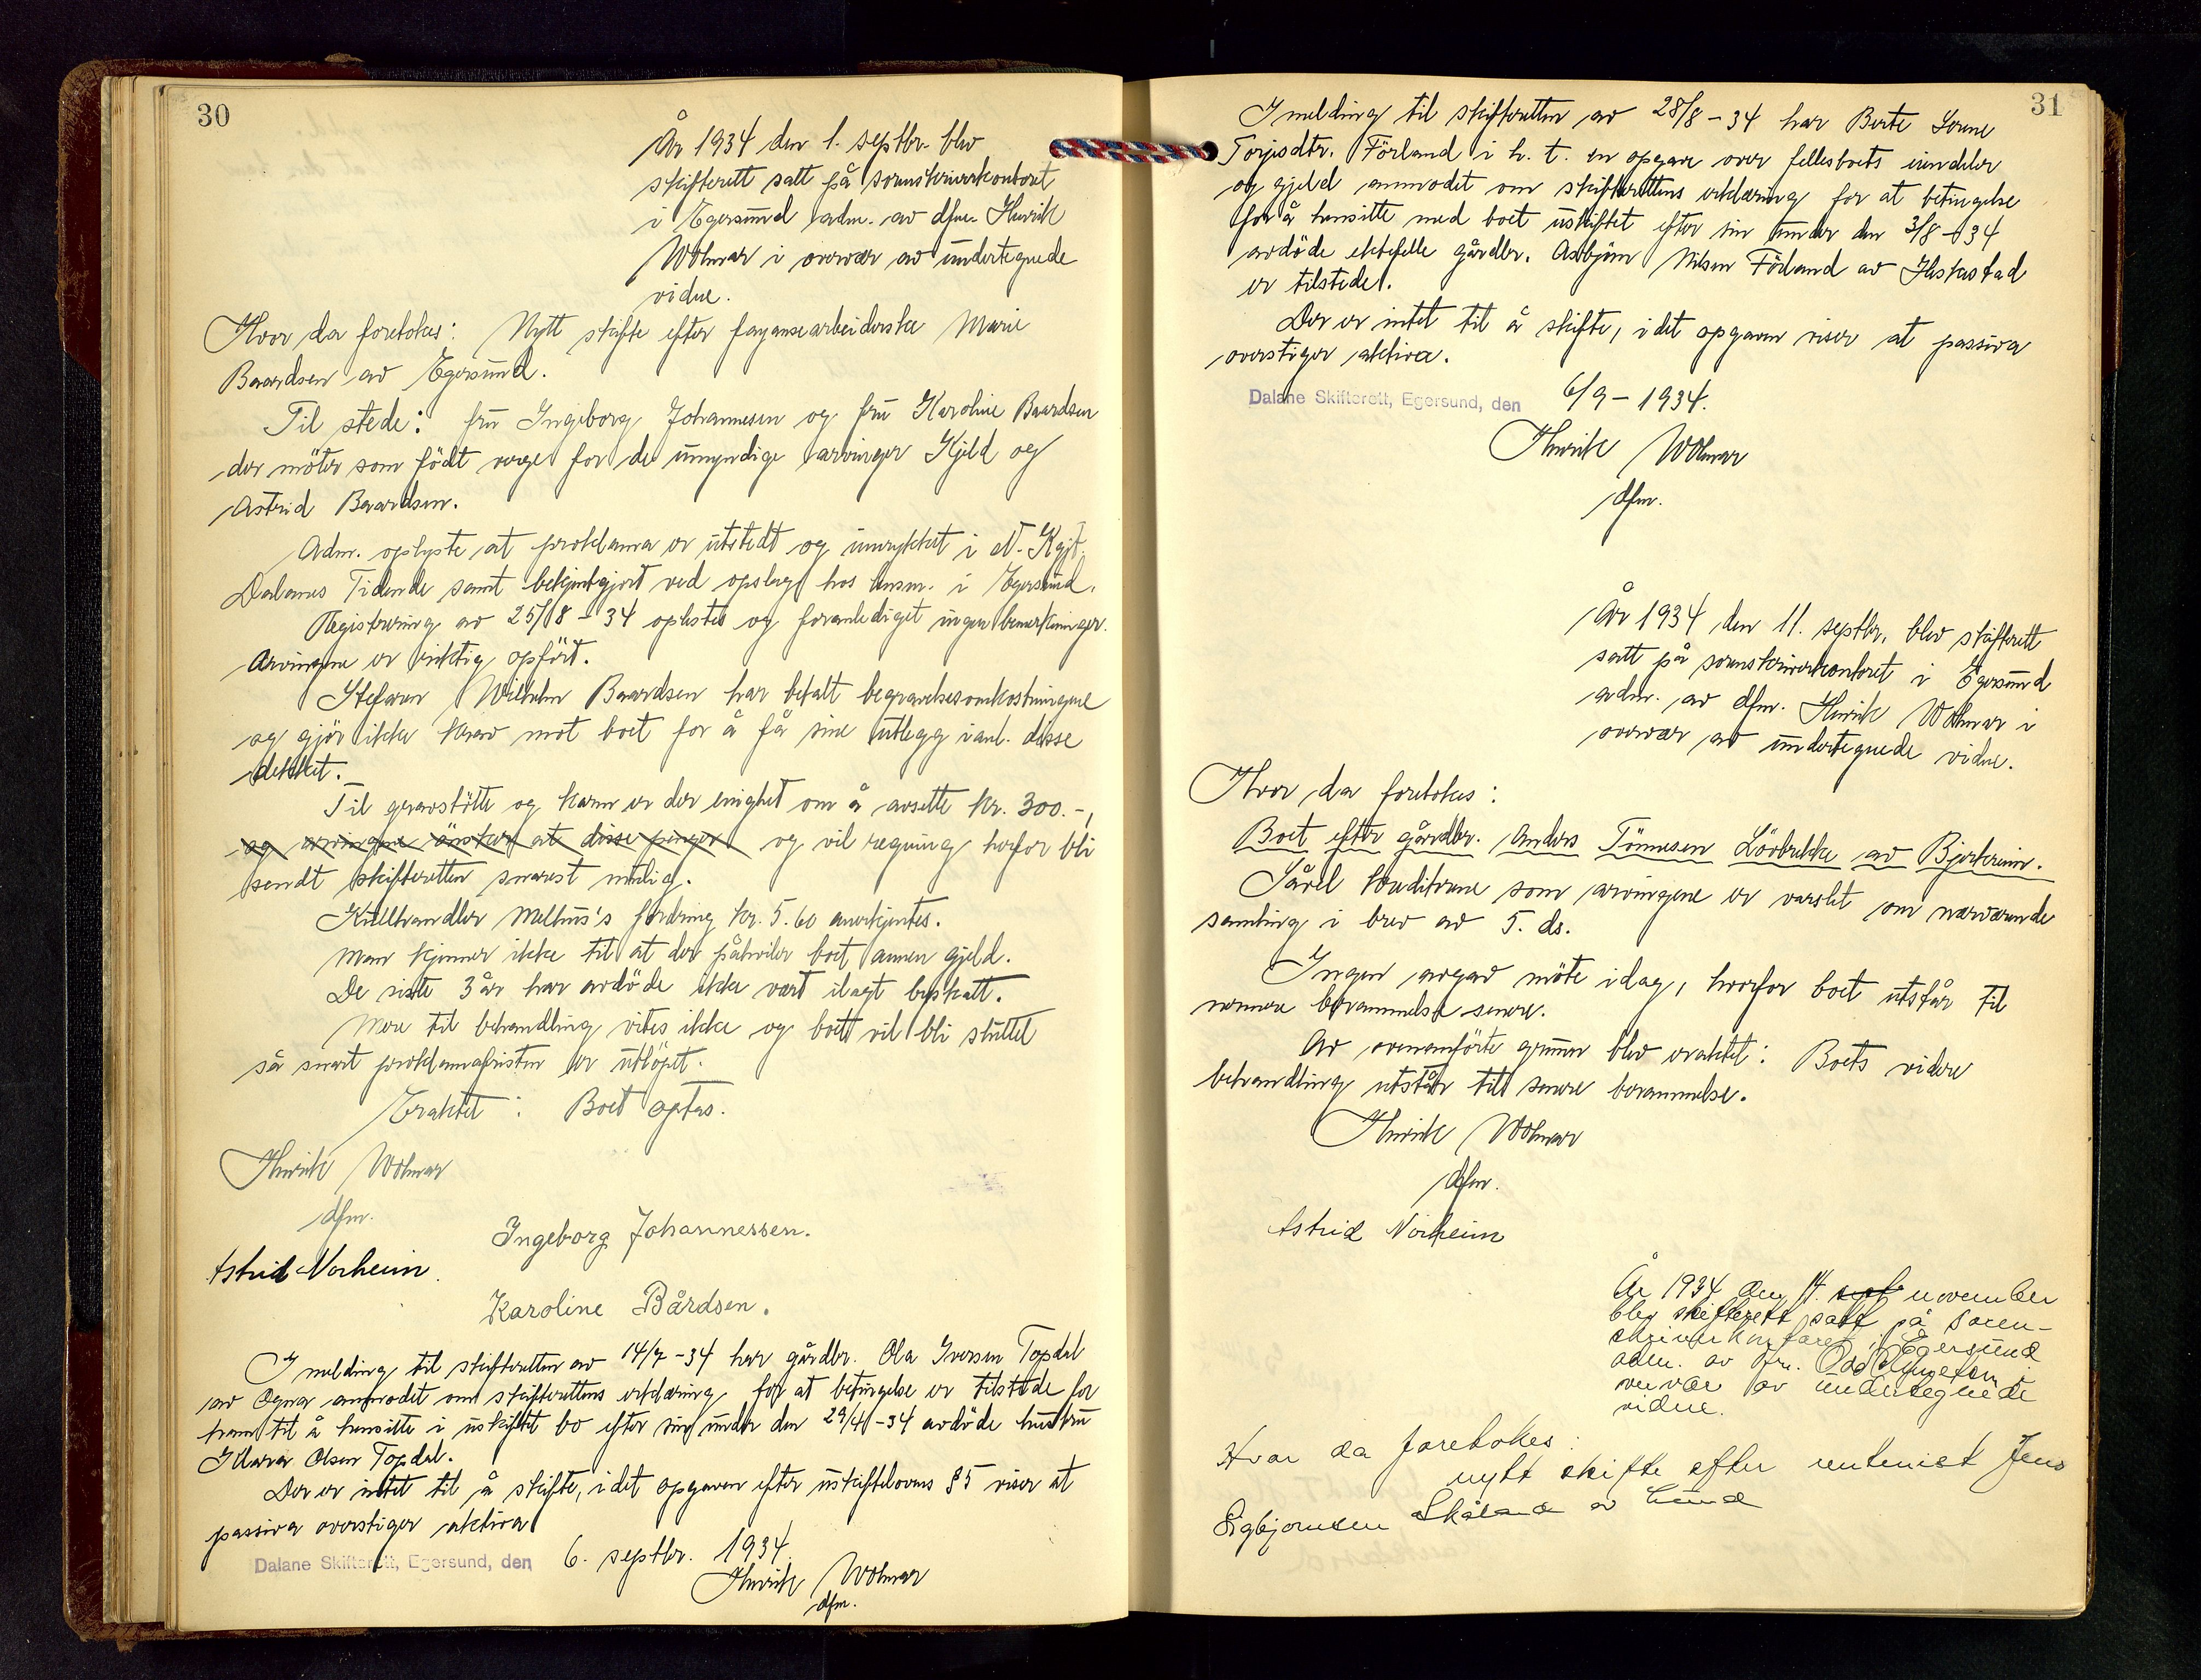 30
År 1934 den 1. septbr. blev
skifterett satt på sorenskriverkontoret
i Egersund adm. av dfm. Henrik
Wolmar i overvær av undertegnede
vidne.
Hvor da foretokes: Nytt skifte efter fayansearbeiderske Marie
Baardsen av Egersund.
Til stede: fru Ingeborg Johannesen og fru Karoline Baardsen
der möter som födt verge for de umyndige arvinger Kjeld og
Astrid Baardsen.
Adm. oplyste at proklama er utstedt og innrykket i N. Kgjt.
Dalanes Tidende samt bekjentgjort ved opslag hos lensm. i Egersund.
Registrering av 25/8-34 oplestes og foranlediget ingen bemerkninger.
Arvingene er riktig opfört.
Stefanen Wilhelm Baardsen har betalt begravelsesomkostningene
og gjör ikke krav mot boet for å få sine utlegg i anl. disse
dekket.
Til gravstötte og karm er der enighet om å avsette kr. 300.-,
og arvingene önsker at disse penger og vil regning herfor bli
sendt skifteretten snarest mulig.
Kullhandler Melhus's fordring kr. 5.60 anerkjentes.
Man kjenner ikke til at der påhviler boet annen gjeld.
De siste 3 år har avdöde ikke vært ilagt byskatt.
Mere til behandling vites ikke og boet vil bli sluttet
så snart proklamafristen er utlöpet.
Eraktet: Boet optas.
Henrik Wolmar
dfm.
Ingeborg Johannessen.
Astrid Norheim.
Karoline Bårdsen.
I melding til skifteretten av 14/7-34 har gårdbr. Ola Iversen Topdal
av Ogna anmodet om skifterettens erklæring for at betingelse er tilstede for
ham til å hensitte i uskiftet bo efter sin under den 29/4-34 avdöde hustru
Klara Olsen Topdal.
Der er intet til å skifte, idet opgaven efter uskiftelovens §5 viser at
passiva overstiger aktiva
Dalane Skifterett, Egersund, den 6. septbr. 1934.
Henrik Wolmar
dfm.
31
I melding til skifteretten av 28/8-34 har Berte Serine
Torjesdtr. Förland i h. t. en opgave over fellesboets eiendeler
og gjeld anmodet om skifterettens erklæring for at betingelse
for å hensitte med boet uskiftet efter sin under den 3/8-34
avdöde ektefelle gårdbr. Asbjörn Nilsen Förland av Helvikstad
er tilstede.
Der er intet til å skifte, idet opgaven viser at passiva
overstiger aktiva.
Dalane Skifterett, Egersund, den 6/9-1934.
Henrik Wolmar
dfm.
År 1934 den 11. septbr. blev skifterett
satt på sorenskriverkontoret i Egersund
adm. av dfm. Henrik Wolmar i
overvær av undertegnede vidne.
Hvor da foretokes:
Boet efter gårdbr. Anders Tönnesen Lövbrekke av Bjerkreim.
Såvel kreditorene som arvingene er varslet om nærværende
samling i brev av 5. ds.
Ingen avgav möte idag, hvorfor boet utstår til
nærmere berammelse senere.
Av ovenanförte grunn blev eraktet: Boets videre
behandling utstår til senere berammelse.
Henrik Wolmar
dfm.
Astrid Norheim
År 1934 den 14. sept november
blev skifterett satt på soren-
skriverkontoret i Egersund
adm. av fm. Odd i
overvær av undertegnede
vidne.
Hvor da foretokes:
nytt skifte efter rentenist Jens
Sigbjørnsen Skåland av Lund